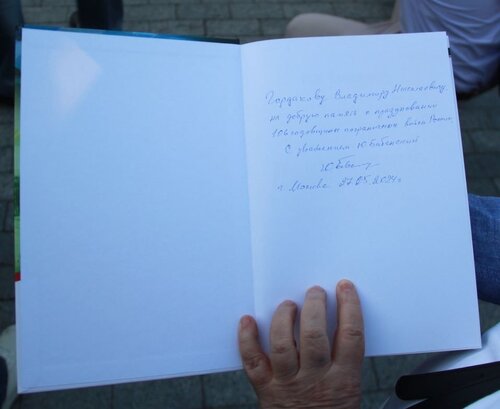 Гордакову Владимиру Николаевичу
на добрую память о праздновании
106 годовщины пограничных войск России
С уважением Ю.Бабанский
г. Москва 27.05.2024г